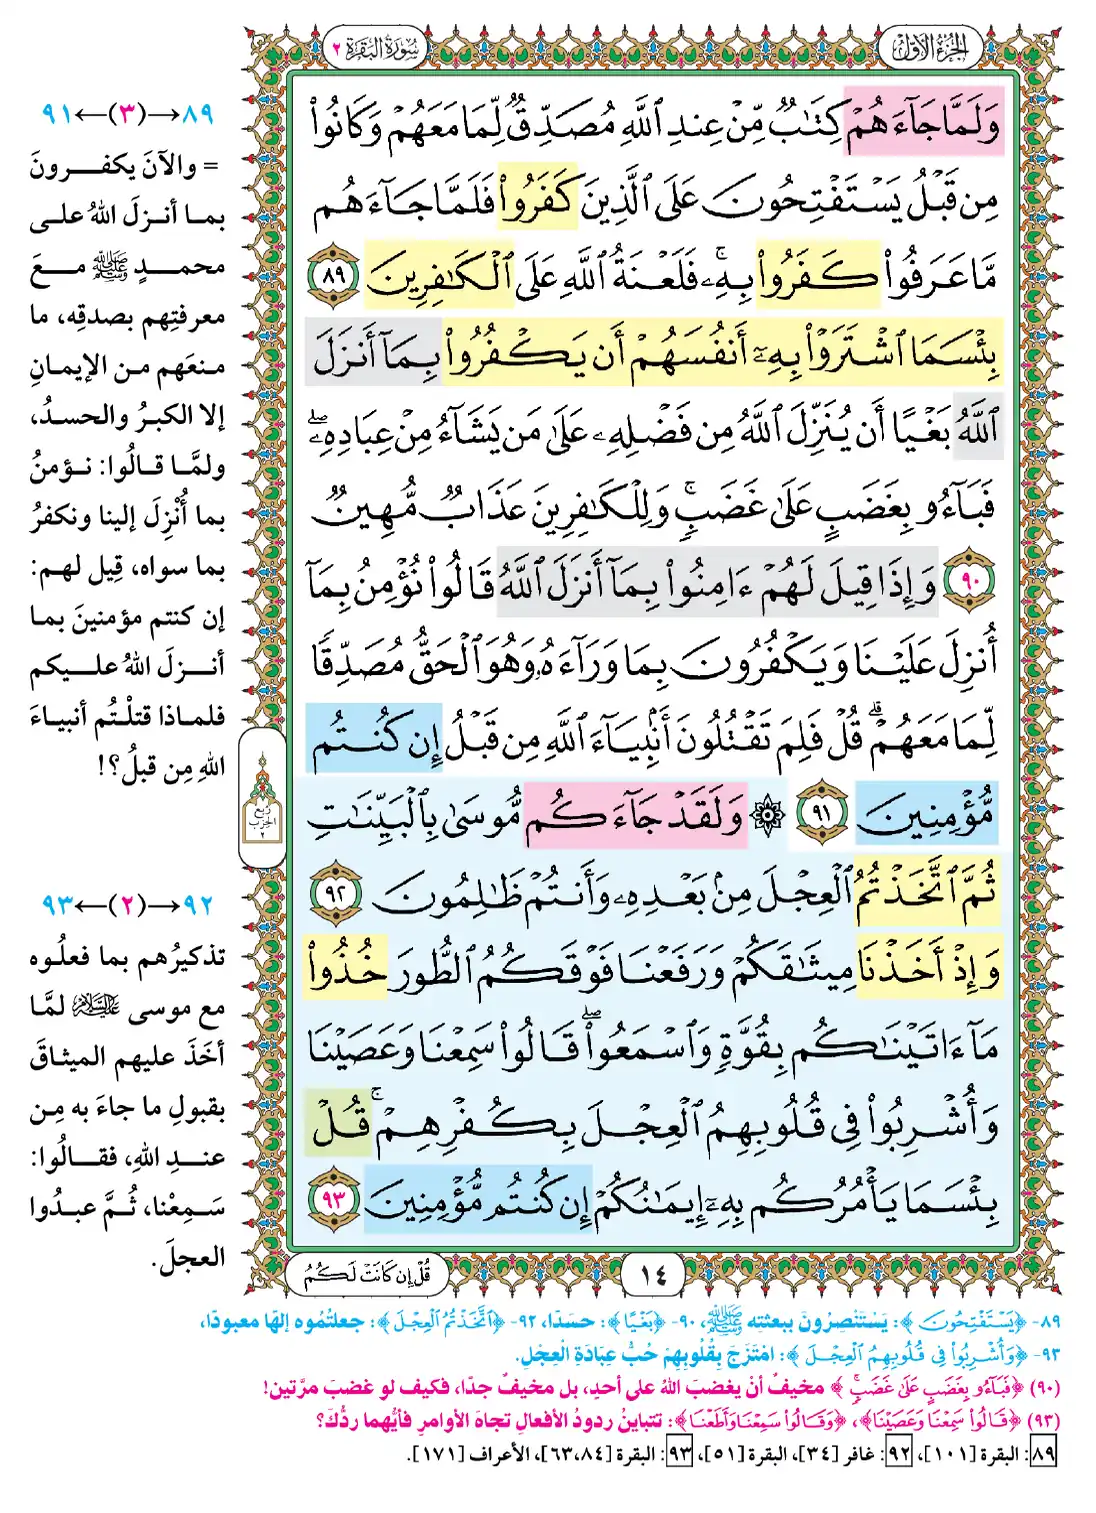 الجزء الأول
سورة البقرة ٢
وَلَمَّا جَآءَهُمْ كِتَٰبٌ مِّنْ عِندِ ٱللَّهِ مُصَدِّقٌ لِّمَا مَعَهُمْ وَكَانُوا۟
مِن قَبْلُ يَسْتَفْتِحُونَ عَلَى ٱلَّذِينَ كَفَرُوا۟ فَلَمَّا جَآءَهُم
مَّا عَرَفُوا۟ كَفَرُوا۟ بِهِۦ ۚ فَلَعْنَةُ ٱللَّهِ عَلَى ٱلْكَٰفِرِينَ ٨٩
بِئْسَمَا ٱشْتَرَوْا۟ بِهِۦٓ أَنفُسَهُمْ أَن يَكْفُرُوا۟ بِمَآ أَنزَلَ
ٱللَّهُ بَغْيًا أَن يُنَزِّلَ ٱللَّهُ مِن فَضْلِهِۦ عَلَىٰ مَن يَشَآءُ مِنْ عِبَادِهِۦ ۖ
فَبَآءُو بِغَضَبٍ عَلَىٰ غَضَبٍ ۚ وَلِلْكَٰفِرِينَ عَذَابٌ مُّهِينٌ
٩٠ وَإِذَا قِيلَ لَهُمْ ءَامِنُوا۟ بِمَآ أَنزَلَ ٱللَّهُ قَالُوا۟ نُؤْمِنُ بِمَآ
أُنزِلَ عَلَيْنَا وَيَكْفُرُونَ بِمَا وَرَآءَهُۥ وَهُوَ ٱلْحَقُّ مُصَدِّقًا
لِّمَا مَعَهُمْ ۗ قُلْ فَلِمَ تَقْتُلُونَ أَنۢبِيَآءَ ٱللَّهِ مِن قَبْلُ إِن كُنتُم
مُّؤْمِنِينَ ٩١ ۞ وَلَقَدْ جَآءَكُم مُّوسَىٰ بِٱلْبَيِّنَٰتِ
ثُمَّ ٱتَّخَذْتُمُ ٱلْعِجْلَ مِنۢ بَعْدِهِۦ وَأَنتُمْ ظَٰلِمُونَ ٩٢
وَإِذْ أَخَذْنَا مِيثَٰقَكُمْ وَرَفَعْنَا فَوْقَكُمُ ٱلطُّورَ خُذُوا۟
مَآ ءَاتَيْنَٰكُم بِقُوَّةٍ وَٱسْمَعُوا۟ ۖ قَالُوا۟ سَمِعْنَا وَعَصَيْنَا
وَأُشْرِبُوا۟ فِى قُلُوبِهِمُ ٱلْعِجْلَ بِكُفْرِهِمْ ۚ قُلْ
بِئْسَمَا يَأْمُرُكُم بِهِۦٓ إِيمَٰنُكُمْ إِن كُنتُم مُّؤْمِنِينَ ٩٣
١٤
قُلْ إِن كَانَتْ لَكُمُ
٨٩→(٣)←٩١
= والآنَ يكفرونَ
بما أنزلَ اللهُ على
محمدٍ ﷺ معَ
معرفتِهم بصدقِه، ما
منعَهم من الإيمانِ
إلا الكبرُ والحسدُ،
ولمَّا قالُوا: نؤمنُ
بما أُنْزِلَ إلينا ونكفرُ
بما سواه، قِيل لهم:
إن كنتم مؤمنينَ بما
أنزلَ اللهُ عليكم
فلماذا قتلْتُم أنبياءَ
اللهِ مِن قبلُ؟!
ربع
الحزب
٢
٩٢→(٢)←٩٣
تذكيرُهم بما فعلُوه
مع موسى عليه السلام لمَّا
أخَذَ عليهم الميثاقَ
بقبولِ ما جاءَ به مِن
عندِ اللهِ، فقالُوا:
سَمِعْنا، ثُمَّ عبدُوا
العجلَ.
٨٩- ﴿يَسْتَفْتِحُونَ﴾: يَسْتَنْصِرُونَ ببعثتِه ﷺ، ٩٠- ﴿بَغْيًا﴾: حسَدًا، ٩٢- ﴿ٱتَّخَذْتُمُ ٱلْعِجْلَ﴾: جعلتُمُوه إلهًا معبودًا،
٩٣- ﴿وَأُشْرِبُوا۟ فِى قُلُوبِهِمُ ٱلْعِجْلَ﴾: امْتَزَجَ بِقُلُوبِهِمْ حُبُّ عِبَادَةِ العِجْلِ.
(٩٠) ﴿فَبَآءُو بِغَضَبٍ عَلَىٰ غَضَبٍ ۚ﴾ مخيفٌ أنْ يغضبَ اللهُ على أحدٍ، بل مخيفٌ جدًا، فكيف لو غضبَ مرَّتين!
(٩٣) ﴿قَالُوا۟ سَمِعْنَا وَعَصَيْنَا﴾، ﴿وَقَالُوا۟ سَمِعْنَا وَأَطَعْنَا﴾: تتباينُ ردودُ الأفعالِ تجاهَ الأوامرِ فأيُّهما ردُّكَ؟
٨٩: البقرة [١٠١]، ٩٢: غافر [٣٤]، البقرة [٥١]، ٩٣: البقرة [٦٣،٨٤]، الأعراف [١٧١].